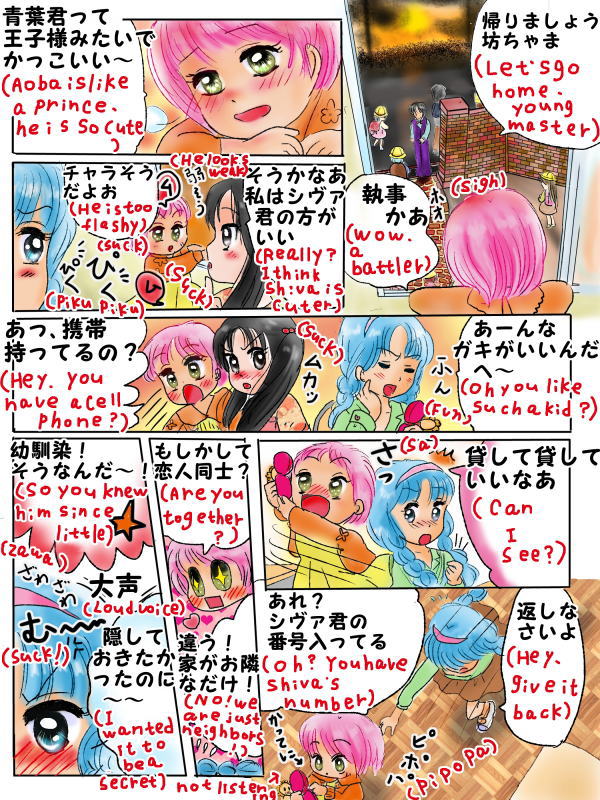 帰りましょう
坊ちゃま
(Let'sgo
home.
young
master)
青葉君って
王子様みたいで
かっこいい～
(Aoba is like
a Prince.
he is so cute
)
(sigh)
ホォ
執事
かあ
(wow.
a
battler)
そうかなあ
私はシヴァ
君の方が
いい
(Really?
I think
Shiva is
cuter)
(He look's
weak)
弱そう
(Suck)
チャラそう
だよお
(He is too
flashy)
(suck)
ぴく
ぴく
(Piku piku)
あーんな
ガキがいいんだ
へ～
(Oh you like
such a kid?)
ふん
(Fun)
(suck)
ムカッ
あっ、携帯
持ってるの？
(Hey. you
have a cell
Phone?)
貸して貸して
いいなあ
(Can
I
See?)
(Sa)
さっ
返しな
さいよ
(Hey,
give it
back)
あれ？
シヴァ君の
番号入ってる
(Oh? You have
Shiva's
number)
ピ
ポ
パ
(Pi po pa)
かってに
もしかして
恋人同士？
(Are you
together
?)
違う！
家がお隣
なだけ！
(No! we
are just
neighbors
!)
not listen
ing
幼馴染！
そうなんだ～！
(So you knew
him since
little)
(zawa)
ざわ
ざわ
大声
(Loud voice)
む～
(Suck!)
隠して
おきたか
ったのに
～～
(I
wanted
it to
be a
secret)